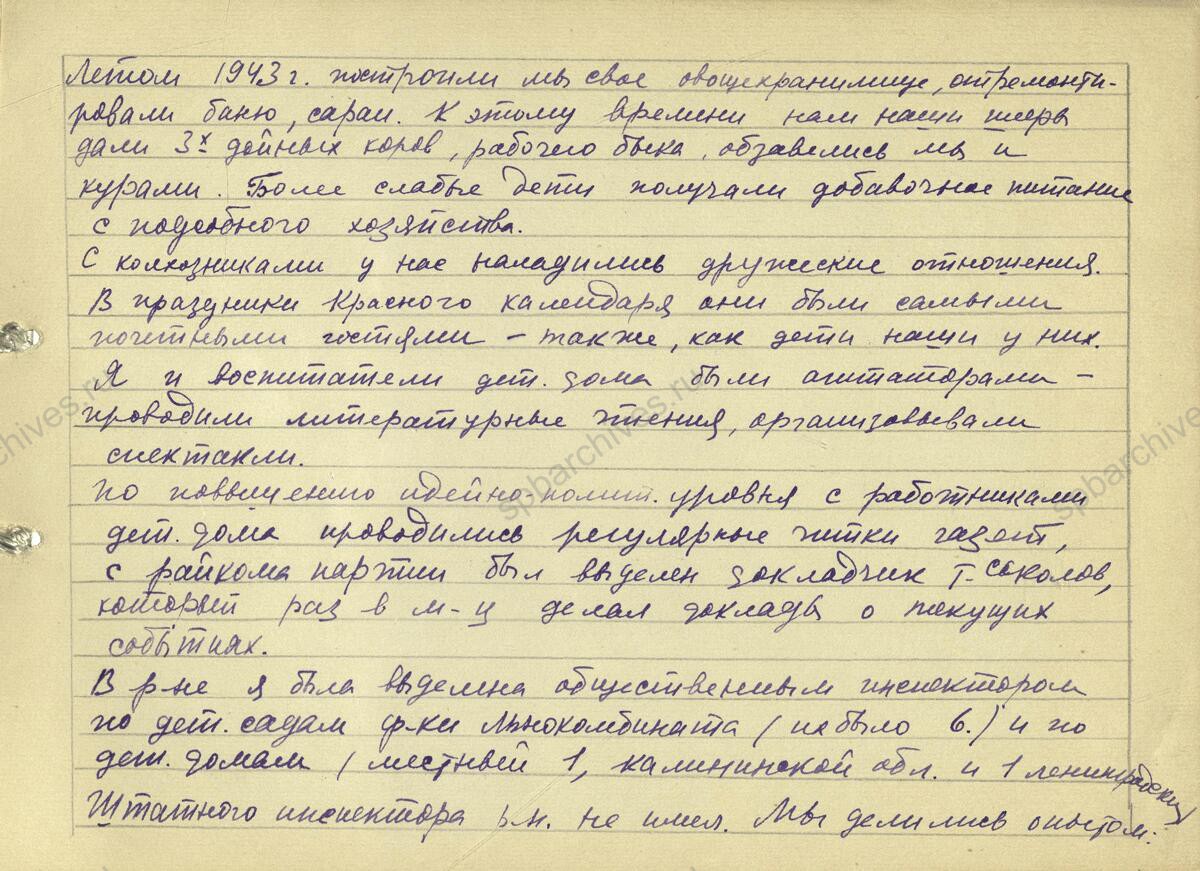 Летом 1943 г. построили мы свое овощехранилище, отремонти-
ровали баню, сараи. К этому времени нам наши шефы
дали 3х дойных коров, рабочего быка, обзавелись мы и
курами. Более слабые дети получали добавочное питание
с подсобного хозяйства.
С колхозниками у нас наладились дружеские отношения.
В праздники Красного календаря они были самыми
почетными гостями - также, как дети наши у них.
Я и воспитатели дет. дома были агитаторами -
проводили литературные чтения, организовывали
спектакли.
По повышению идейно-полит. уровня с работниками
дет. дома проводились регулярные читки газет,
с райкома партии был выделен докладчик т. Соколов,
который раз в м-ц делал доклады о текущих
событиях.
В р-не я была выделена общественным инспектором
по дет. садам ф-ки Льнокомбината (их было 6.) и по
дет. домам (местный 1, калининской обл. и 1 ленинградский
Штатного инспектора р.н. не имел. Мы делились опытом.
spbarchives.ru
spbarchives.ru
spbarchives.ru